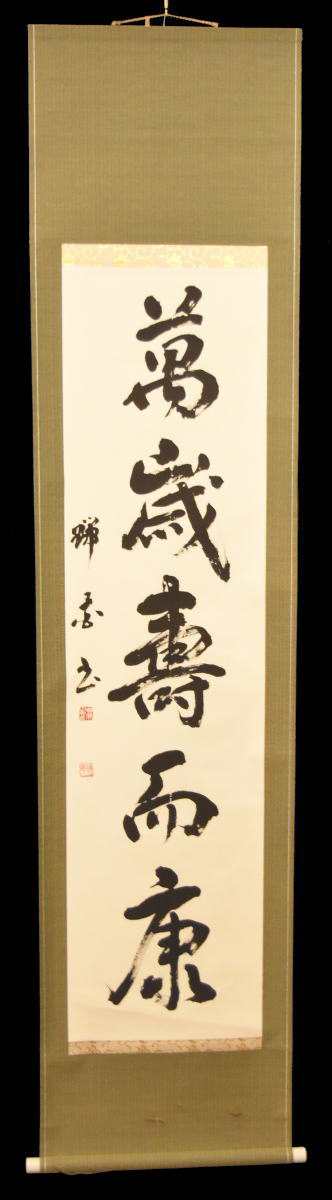 萬歳壽而康
書